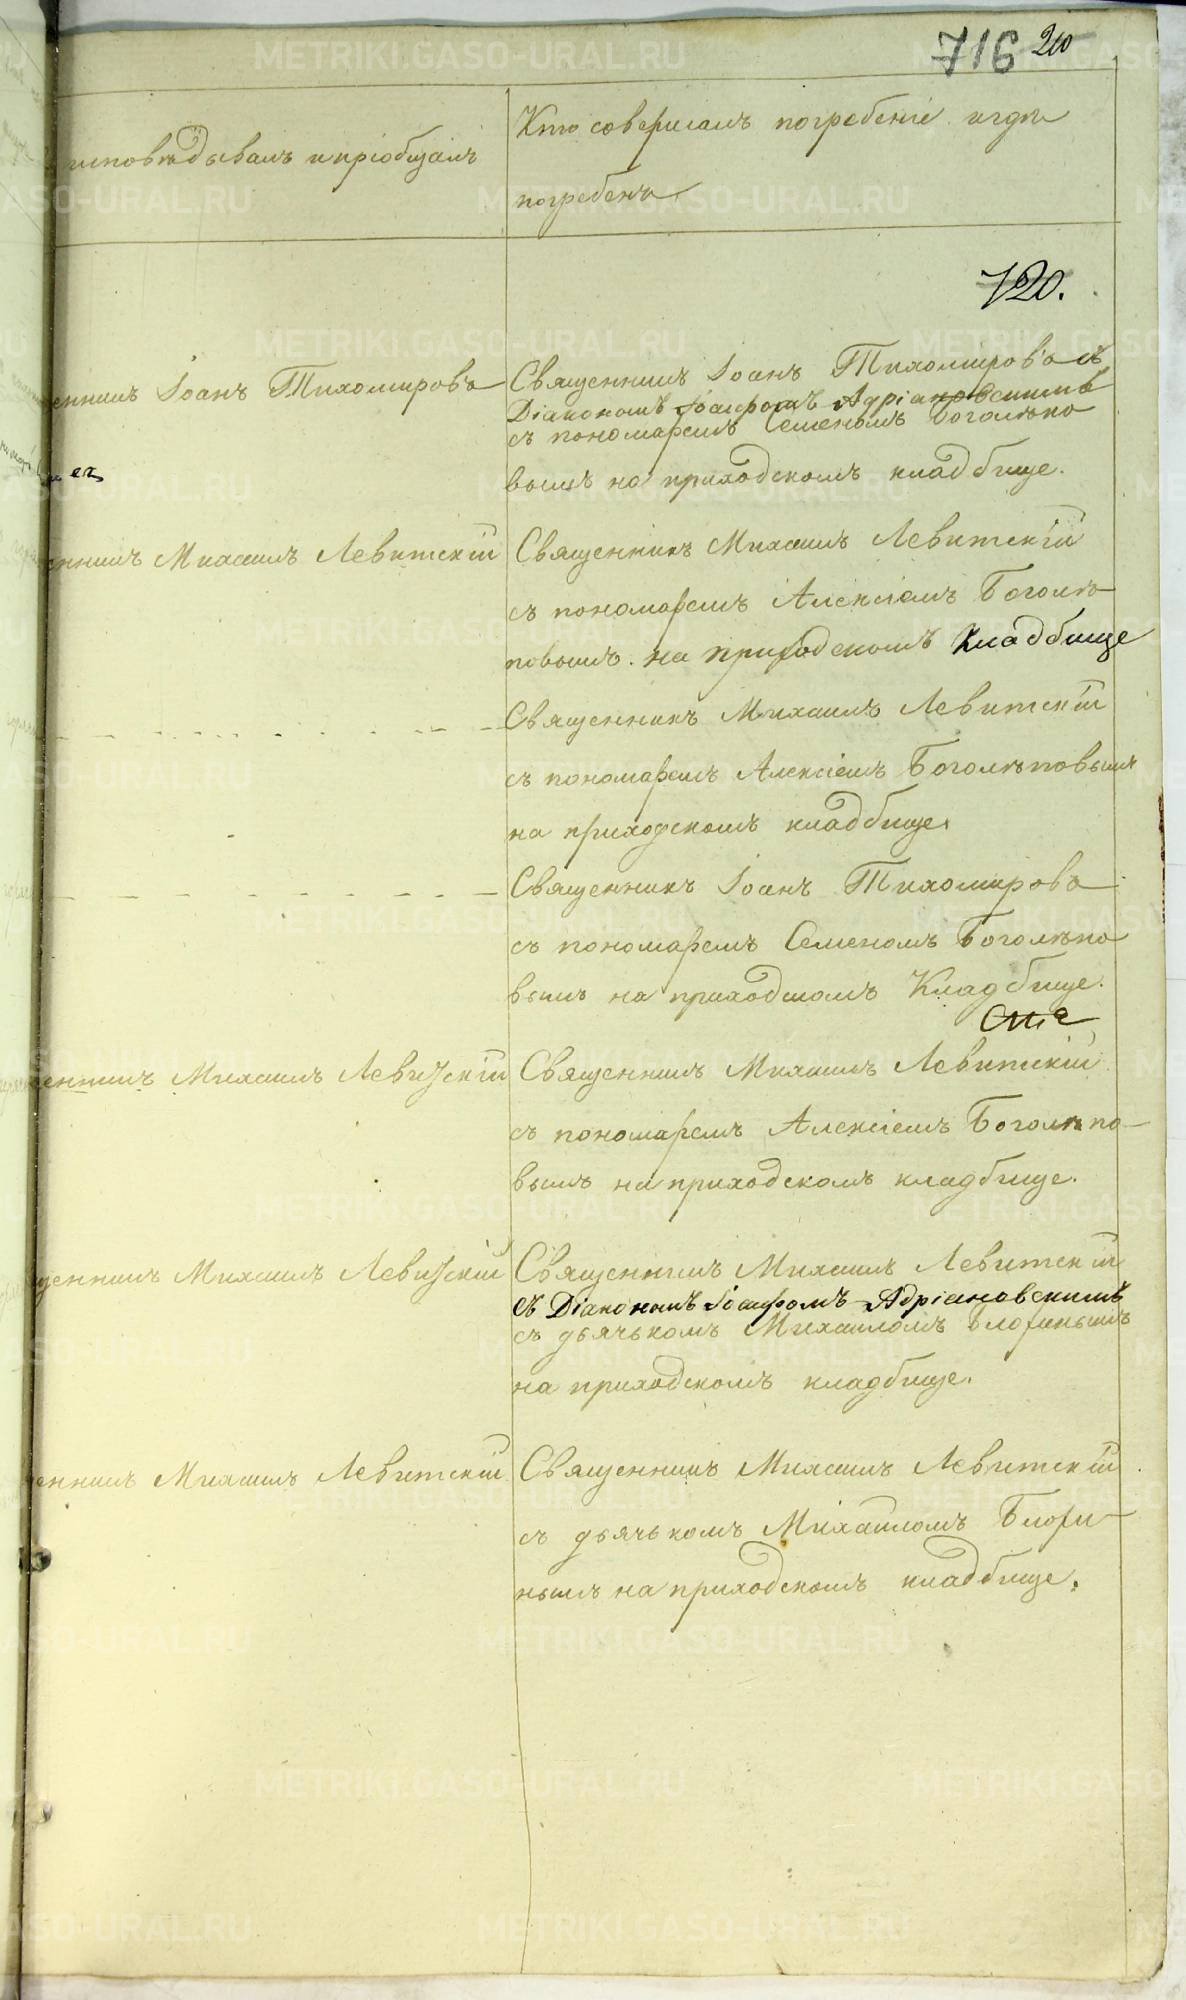 716 210
Кто совершалъ погребеніе и гдѣ
исповѣдывалъ и пріобщалъ
погребенъ
720.
Іоанъ Тихомировъ
Священникъ Іоанъ Тихомировъ съ
Діакономъ Іоасафомъ Адріановскимъ
съ пономаремъ Семеномъ Боголѣпо
вымъ на приходскомъ кладбище.
Михаилъ Левитскій
Священникъ Михаилъ Левитскій
съ пономаремъ Алексіемъ Боголѣ-
повымъ. на приходскомъ Кладбище
Священникъ Михаилъ Левитскій
съ пономаремъ Алексіемъ Боголѣповымъ
на приходскомъ кладбище.
Священникъ Іоанъ Тихомировъ
съ пономаремъ Семеномъ Боголѣпо
вымъ на приходскомъ Кладбище.
Михаилъ Левитскій
Священникъ Михаилъ Левитскій
съ пономаремъ Алексіемъ Боголѣпо-
вымъ на приходскомъ кладбище.
Михаилъ Левитскій
Священникъ Михаилъ Левитскій
съ Діакономъ Іоасафомъ Адріановскимъ
съ дьячькомъ Михаиломъ Блориным
на приходскомъ кладбище.
Михаилъ Левитскій
Священникъ Михаилъ Левитскій
съ дьячькомъ Михаиломъ Блори-
нымъ на приходскомъ кладбище.
METRIKI.GASO-URAL.RU